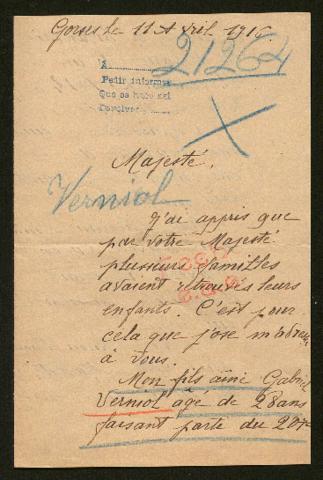 Gorses le 11 Avril 1916.
21264
A
Pedir informes
Que se haga así
Verniol
Majesté,
J'ai appris que
par Votre Majesté
plusieurs familles
avaient retrouvés leurs
enfants. C'est pour
cela que j'ose m'adresser
à Vous.
Mon fils ainé Gabriel
Verniol âgé de 28 ans
faisant partie du 207e